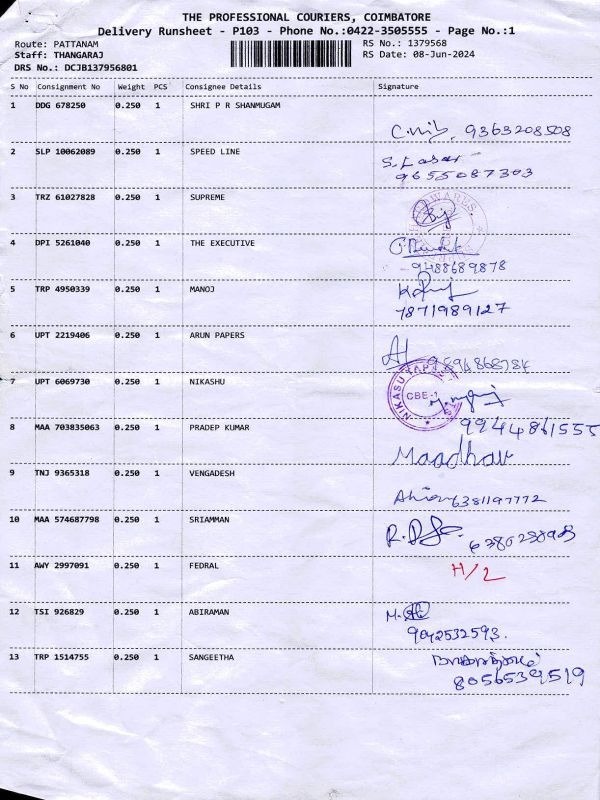 THE PROFESSIONAL COURIERS, COIMBATORE
Delivery Runsheet - P103 - Phone No.:0422-3505555 - Page No.:1
Route: PATTANAM RS No.: 1379568
Staff: THANGARAJ RS Date: 08-Jun-2024
DRS No.: DCJB137956801
S No Consignment No Weight PCS Consignee Details Signature
1 DDG 678250 0.250 1 SHRI P R SHANMUGAM
9363208508
2 SLP 10062089 0.250 1 SPEED LINE
9655087303
3 TRZ 61027828 0.250 1 SUPREME
4 DPI 5261040 0.250 1 THE EXECUTIVE
9488689878
5 TRP 4950339 0.250 1 MANOJ
7871989127
6 UPT 2219406 0.250 1 ARUN PAPERS
7 UPT 6069730 0.250 1 NIKASHU
CBE-1
9944861555
8 MAA 703835063 0.250 1 PRADEP KUMAR
Maadhav
9 TNJ 9365318 0.250 1 VENGADESH
6381197772
10 MAA 574687798 0.250 1 SRIAMMAN
11 AWY 2997091 0.250 1 FEDRAL
H/2
12 TSI 926829 0.250 1 ABIRAMAN
9042532593.
13 TRP 1514755 0.250 1 SANGEETHA
8056539519